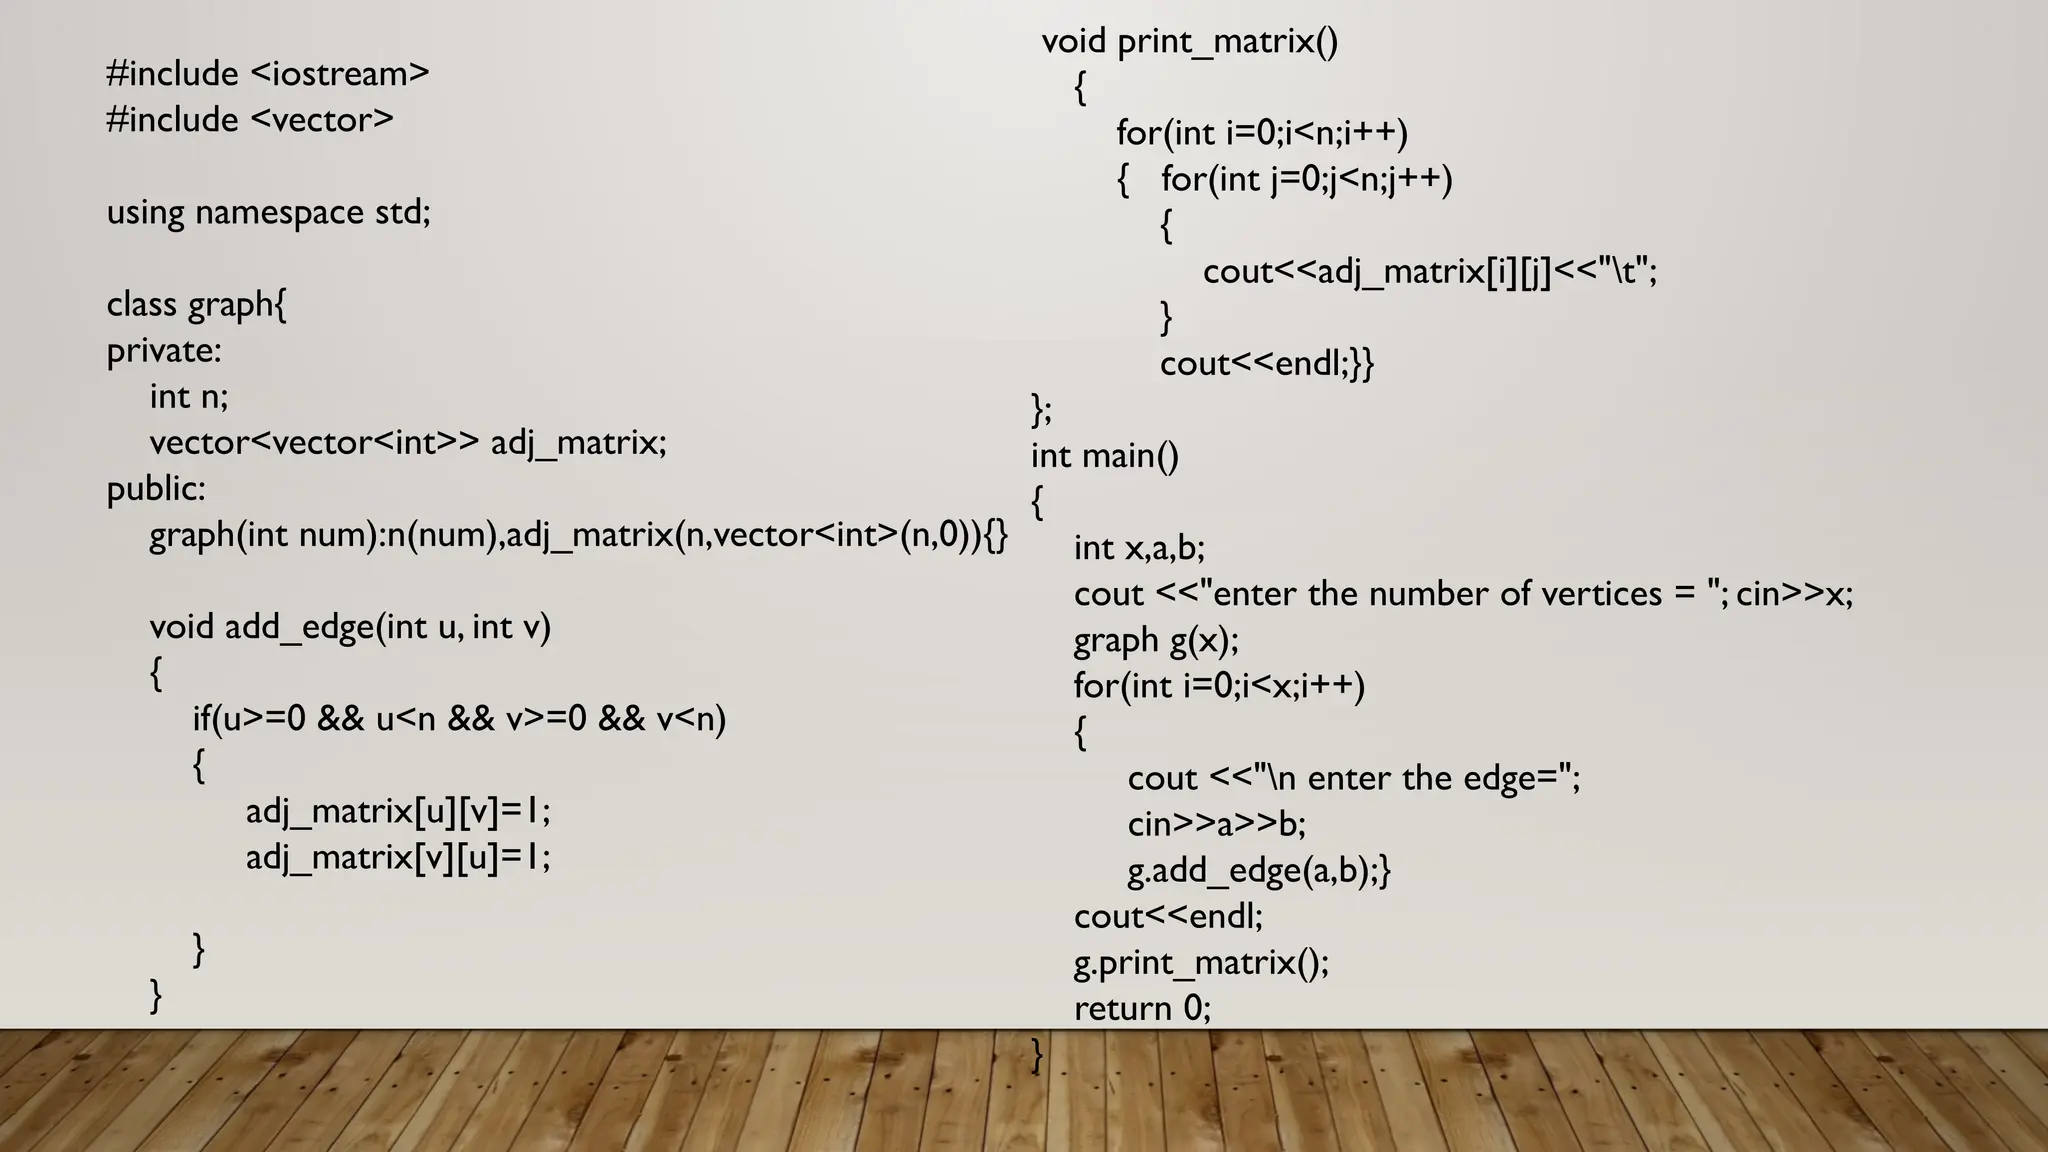 #include <iostream>
#include <vector>
using namespace std;
class graph{
private:
int n;
vector<vector<int>> adj_matrix;
public:
graph(int num):n(num),adj_matrix(n,vector<int>(n,0)){}
void add_edge(int u, int v)
{
if(u>=0 && u<n && v>=0 && v<n)
{
adj_matrix[u][v]=1;
adj_matrix[v][u]=1;
}
}
void print_matrix()
{
for(int i=0;i<n;i++)
{ for(int j=0;j<n;j++)
{
cout<<adj_matrix[i][j]<<"\t";
}
cout<<endl;}}
};
int main()
{
int x,a,b;
cout <<"enter the number of vertices = "; cin>>x;
graph g(x);
for(int i=0;i<x;i++)
{
cout <<"\n enter the edge=";
cin>>a>>b;
g.add_edge(a,b);}
cout<<endl;
g.print_matrix();
return 0;
}